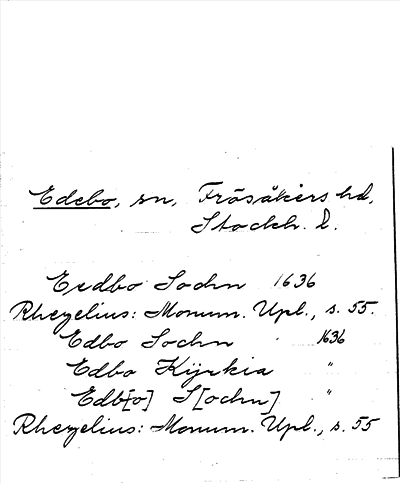 Edebo, sn, Frösåkers hd,
Stockh. l.
Eedbo Sochn 1636
Rhezelius: Monum. Upl., s. 55.
Edbo Sochn 1636
Edbo Kÿrkia "
Edb[o] S[ochn] "
Rhezelius: Monum. Upl., s. 55